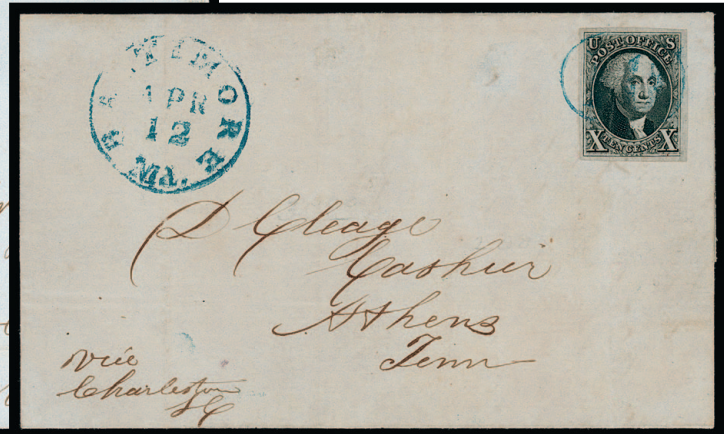 BALTIMORE Md.
APR
12
U S
POST OFFICE
X TEN CENTS X
D Cleage
Cashier
Athens
Tenn
via
Charleston
SC